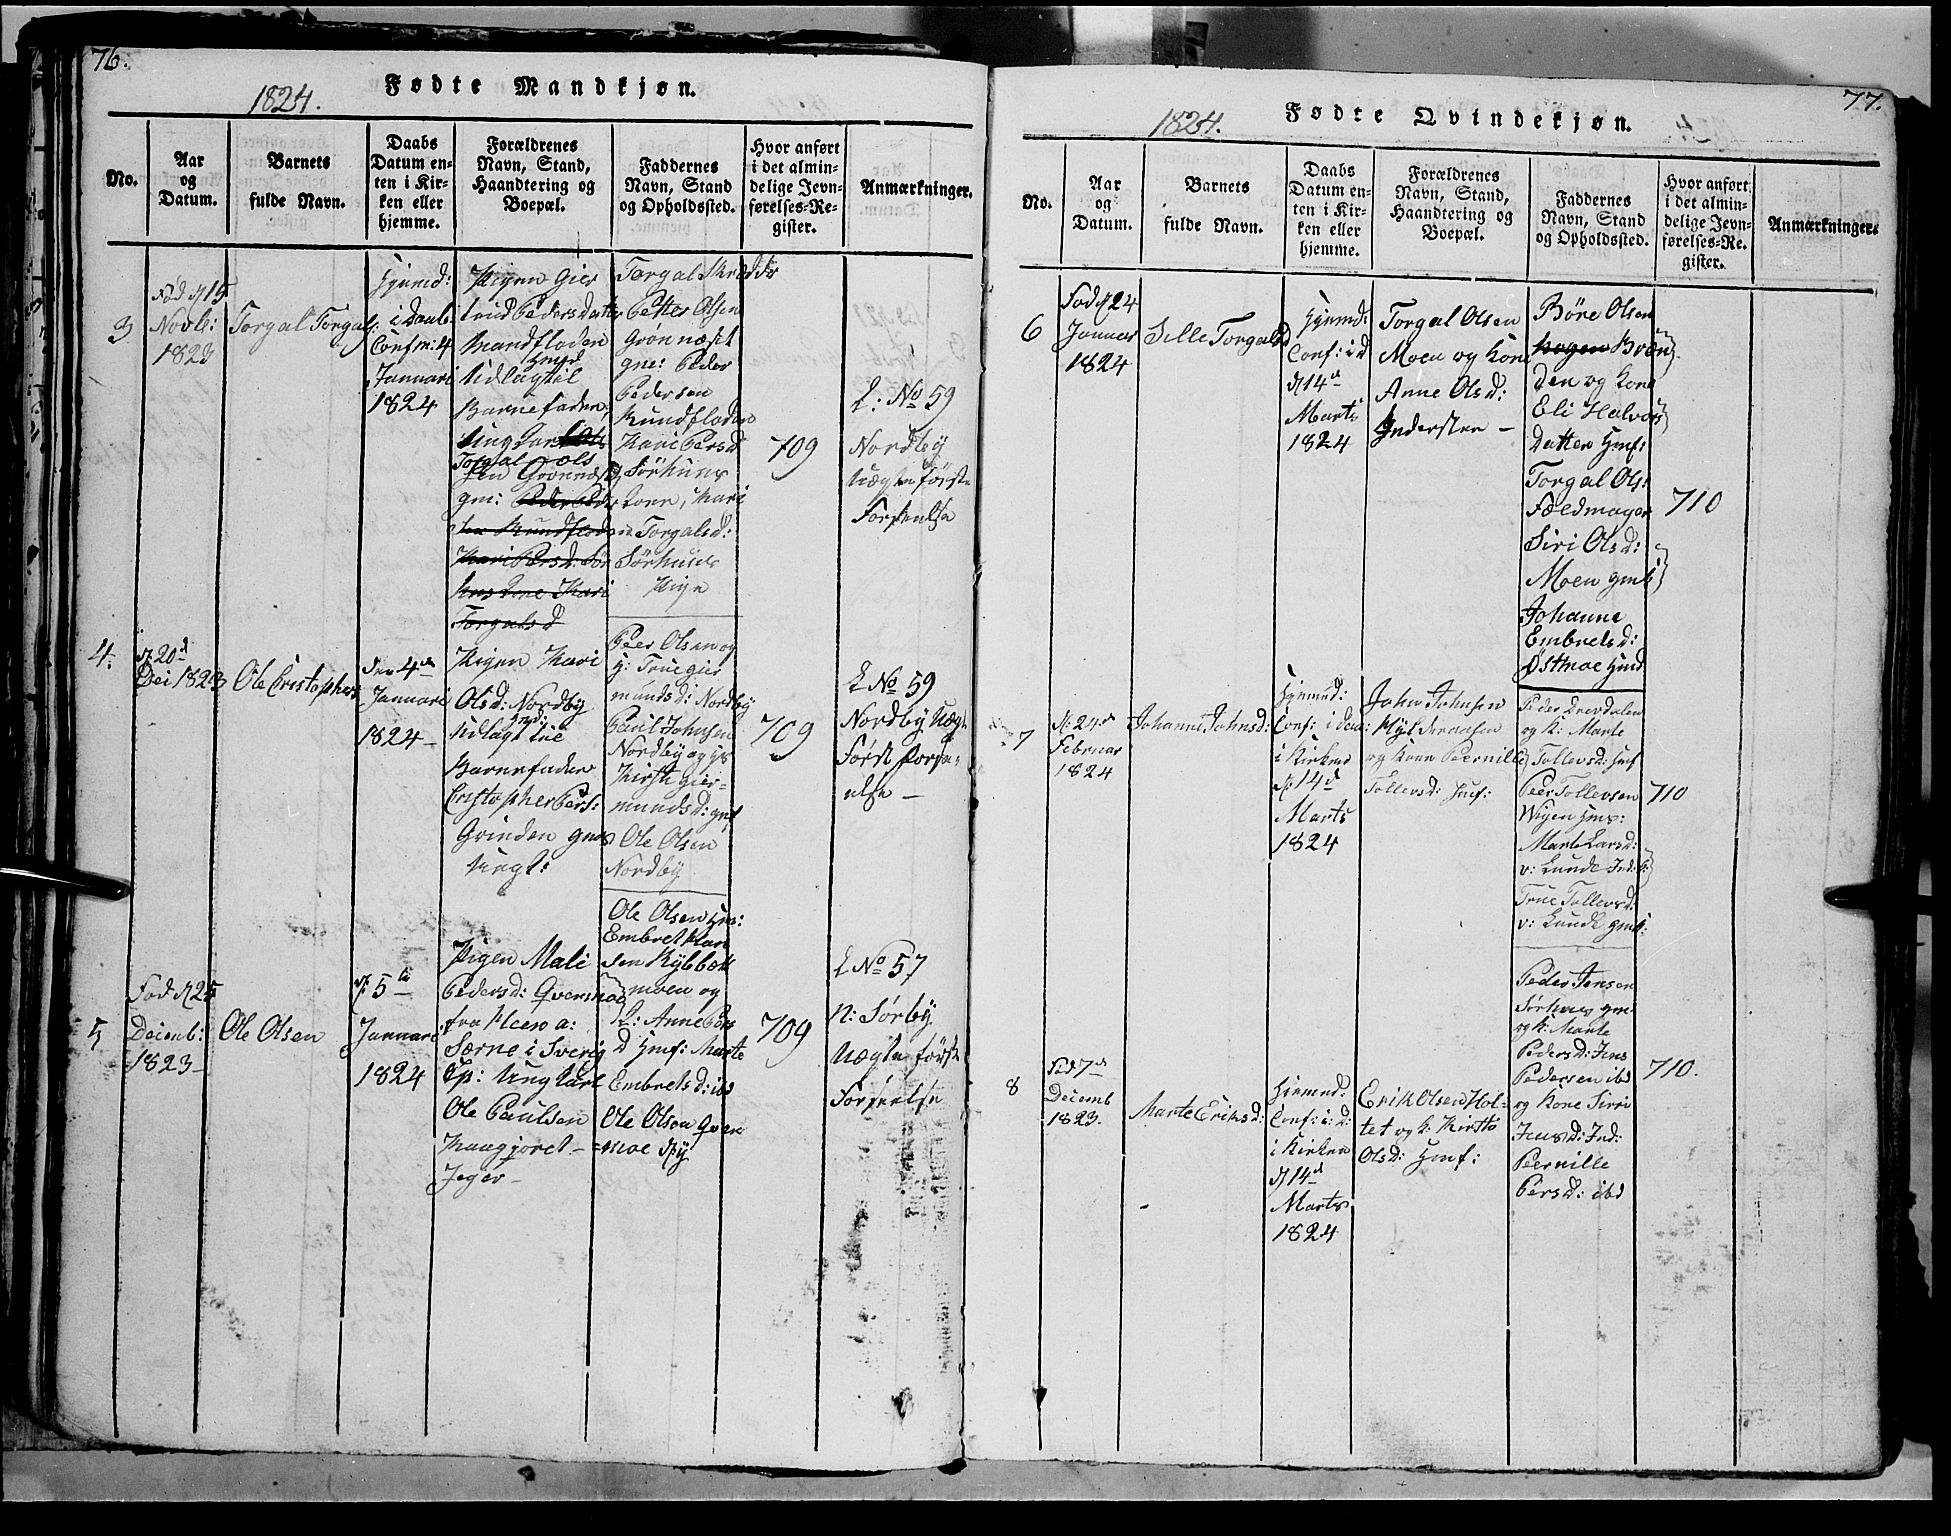 76.
1824.
Fødte Mandkjøn.
No.
Aar
og
Datum.
Barnets
fulde Navn.
Daabs
Datum en-
ten i Kir-
ken eller
hjemme.
Forældrenes
Navn, Stand,
Haandtering og
Boepæl.
Faddernes
Navn, Stand
og Opholdssted.
Hvor anført
i det almin-
delige Jevn-
førelses-Re-
gister.
Anmærkninger.
3
Fød d 15
Novb:
1823
Torgal Torgals:
Hjemd:
i Daab
Conf m: 4
Januari
1824
Pigen Gier
trud Pedersdatter
Mandfloden
Udlagt til
Barnefader
Ung Karl
Torgal Ols
gm:
Torgals d
Torgal
Petter Olsen
Grønnæset
gm: Peder
Pedersen
Rundfloden
Kari Persd
Sørhuus
kone, Kari
Torgalsd:
Sørhuus
Pige
709
L: No 59
Nordby
Uægte første
Forseelse
4.
d. 20d
Dec 1823
Ole Cristophers
Den 4de
Januari
1824
Pigen Kari
Olsd: Nordby
Udlagt til
Barnefader
Cristopher Pers:
Grinden gms
Ungk:
Peer Olsen og
munds d: Nordby
Paul Johnsen
Nordby og
Kirsti Gier-
munds d: gmf
Ole Olsen
Nordby
709
L No 59
Nordby Uægte
Først Forse-
else
5
Fød d 25
Decemb:
1823
Ole Olsen
d 5te
Januari
1824
Pigen Mali
Pedersd: Qvernmoe
fra
Særne i Sverig
Ung Karl
Ole Paulsen
Haagjoret
Jeger
Ole Olsen Hm:
Embret
sen Kylbæk
moen og
K: Anne Pers
d Hmf: Marte
Embretsd: ibd
Ole Olsen Qven
moe Ny
709
L No 57
N: Sørby
Uægte første
Forseelse
77.
1824.
Fødte Qvindekjøn.
No.
Aar
og
Datum.
Barnets
fulde Navn.
Daabs
Datum en-
ten i Kir-
ken eller
hjemme.
Forældrenes
Navn, Stand,
Haandtering og
Boepæl.
Faddernes
Navn, Stand
og Opholdssted.
Hvor anført
i det almin-
delige Jevn-
førelses-Re-
gister.
Anmærkninger.
6
Fød d 24
Januar
1824
Sille Torgalsd
Hjemd:
Conf: i d
d 14d
Marts
1824
Torgal Olsen
Moen og Kone
Anne Olsd:
Inderster
Børe Olsen
Bræn
den og Kone
Eli Halvors
Datter Hmf:
Torgal Ols:
Fældmager
Siri Olsd:
Moen gmf
Johanne
Embretsd:
Østmoe Hmd
710
7
d: 24de
Februar
1824
Johanne Johnsd:
Hjemd:
Conf: i Daa:
i Kirken
d: 14d
Marts
1824
John Johnsen
og Kone Peernille
Tollevsd: Hmf:
Peder Drevdalen
og K: Marte
Tollevsd: Hmf
Peer Tollevsen
Wigen Hms:
Marte Larsd:
v: Lunde Ind:
True Tollevsd:
v: Lunde gmf:
710
8
Fød 7de
Decemb
1823.
Marte Eriksd:
Hjemd:
Conf: i: d:
i Kirken
d 14d
Marts
1824
Erik Olsen Hol-
tet og K: Kirsto
Olsd: Hmf:
Peder Jensen
Sørhuus gm
og K: Marte
Pedersd: Jens
Pedersen ibd
og Kone Sirri
Jensd: Ind:
Peernille
Persd: ibd
710.